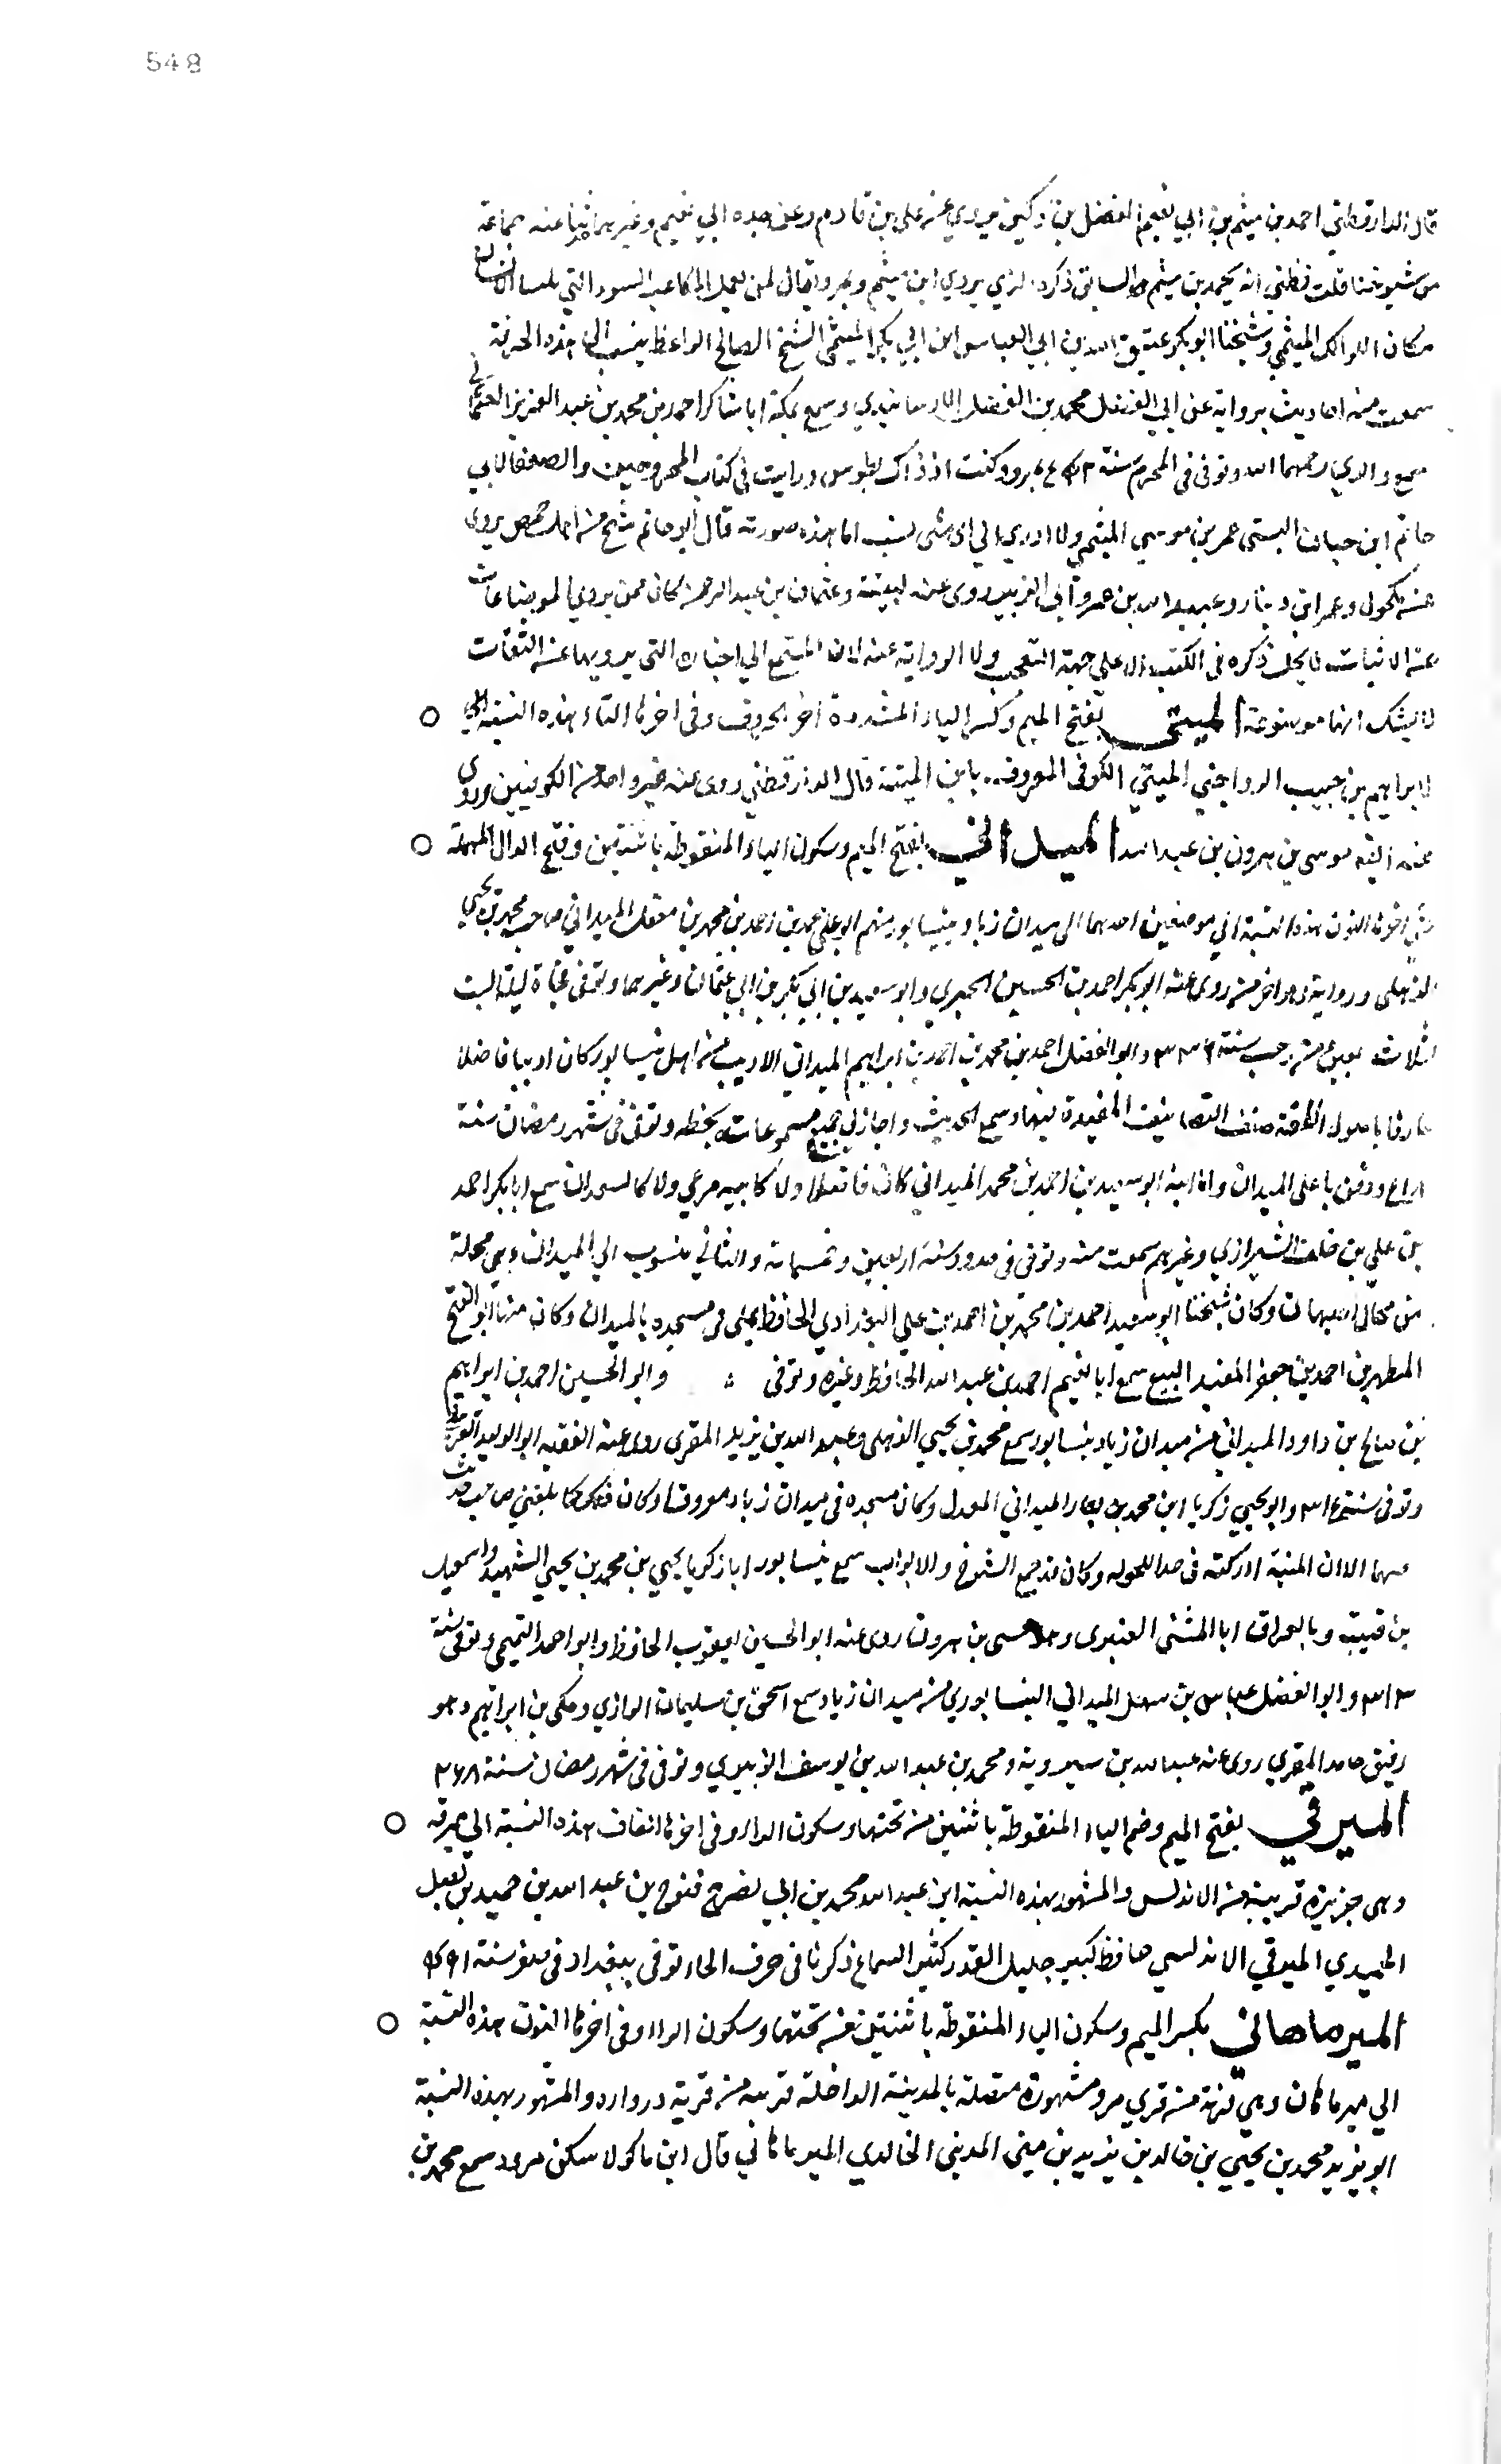 548
قال الدارقطني احمد بن ميثم بن ابي نعيم الفضل بن دكين يروي عن علي بن قادم وعن جده ابي نعيم وغيرهما ثنا عنه جماعة
من شيوخنا قلت فظني انه محمد بن ميثم السابق ذكره الذي يروي ابن ميثم وبمرو يقال لمن يعمل السود التي
مكان اللوالك الميثمي وشيخنا ابو بكر عتيق الله بن ابي العباس ابن ابي بكر الميثمي الشيخ الصالح الواعظ ينسب الى هذه الحرفة
سمعت منه احاديث بروايته عن ابي الفضل محمد بن الفضل وسمع بمكة ابا شاكر احمد بن محمد بن عبد العزيز العثماني
سمع والدي رحمهما الله وتوفى فى المحرم سنة بمرو وكنت اذ ذاك بطوس ورايت فى كتاب المجروحين والضعفا لابي
حاتم ابن حبان البستي عمر بن موسي الميثمي ولا ادري الي اى شى نسب انما هذه صورته قال ابو حاتم شيخ من اهل حمص يروى
عن مكحول وعمر ابن دينار وعبيد الله بن عمرو ابي الزبير روى عنه بقية وعثمان بن عبد الرحمن كان ممن يروي الموضوعات
عن الاثبات لا يحل ذكره فى الكتب الا على جهة التعجب ولا الرواية عنه لان المستمع الي اخباره التي يرويها عن الثقات
لا يشك انها موضوعة الميتى بفتح الميم وكسر الياء المشددة اخر الحروف وفى اخرها التاء هذه النسبة الي
لابراهيم بن حبيب الرواجني الميتي الكوفى المعروف بابن الميتة قال الدارقطني روى عنه غير واحد من الكوفيين وروى
عنه ايضا موسى بن هرون بن عبد الله الميداني بفتح الميم وسكون الياء المنقوطة باثنتين وفتح الدال المهملة
وفي اخرها النون هذه النسبة الي موضعين احدهما الى ميدان زياد بنيسابور منهم ابو علي محمد بن احمد بن محمد بن معقل الميداني صاحب محمد بن يحيي
الذهلى وروايته وهو اخر من روى عنه ابو بكر احمد بن الحسين الحيري وابو سعيد بن ابي بكر بن ابي عثمان وغيرهما وتوفى فجاة ليلة
الثلاث من رجب سنة ٣٣٦ وابو الفضل احمد بن محمد بن احمد بن ابراهيم الميداني الاديب من اهل نيسابور كان اديبا فاضلا
عارفا باصول اللغة صنف التصانيف المفيدة فيها وسمع الحديث واجاز لي جميع مسموعاته بخطه وتوفى فى شهر رمضان سنة
ودفن باعلى الميدان واما ابنه ابو سعيد بن احمد بن محمد الميداني كان فاضلا سمع ابا بكر احمد
بن علي بن خلف الشيرازي وغيرهم سمعت منه وتوفى فى حدود سنة اربعين وخمسمائة والثاني منسوب الي الميدان وهي محلة
من محال اصبهان وكان شيخنا ابو سعيد احمد بن محمد بن احمد بن علي البغدادي الحافظ يملى فى مسجده بالميدان وكان منها ابو الفتح
المطهر بن احمد بن جعفر المفيد البيع سمع ابا نعيم احمد بن عبد الله الحافظ وغيره وتوفى وابو الحسين احمد بن ابراهيم
بن صالح بن داود الميداني من ميدان زياد بنيسابور سمع محمد بن يحيي الذهلى وعبد الله بن يزيد المقرى روى عنه الفقيه ابو الوليد القرشي
وتوفى سنة وابو يحيي زكريا ابن محمد بن بكار الميداني المعدل وكان مسجده فى ميدان زياد معروفا وكان فيما بلغني صاحب حديث
الا ان المنية ادركته فى حد الكهولة وكان قد جمع الشيوخ والابواب سمع بنيسابور ابا زكريا يحيي بن محمد بن يحيي الشهيد واسمعيل
بن قتيبة وبالعراق ابا المثنى العنبرى وموسى بن هرون روى عنه ابو الحسين يعقوب الحافظ وابو احمد التميمى وتوفى سنة
٣١٣ وابو الفضل عباس بن سهل الميداني النيسابوري من ميدان زياد سمع اسحق بن سليمان الرازي ومكى بن ابراهيم وهو
رفيق حامد المقري روى عنه عبد الله بن سيرويه ومحمد بن عبد الله بن يوسف الزبيري وتوفى فى شهر رمضان سنة ٢٦٨
الميرقي بفتح الميم وضم الياء المنقوطة باثنتين من تحتها وسكون الراء وفى اخرها القاف هذه النسبة الي ميرقه
وهى جزيرة قريبة من الاندلس والمشهور بهذه النسبة ابن عبد الله محمد بن ابي نصر فتوح بن عبد الله بن حميد بن يصل
الحميدي الميرقي الاندلسي حافظ كبير جليل القدر كثير السماع ذكرنا فى حرف الحاء توفى ببغداد فى صفر سنة
الميرماهاني بكسر الميم وسكون الياء المنقوطة باثنتين من تحتها وسكون الراء وفى اخرها النون هذه النسبة
الي ميرماهان وهي قرية من قري مرو مشهورة متصلة بالمدينة الداخلة قريبه من قرية دروازه والمشهور بهذه النسبة
ابو يزيد محمد بن يحيي بن خالد بن يزيد بن متى المديني الخالدي الميرماهاني قال ابن ماكولا سكن مرو وسمع محمد بن